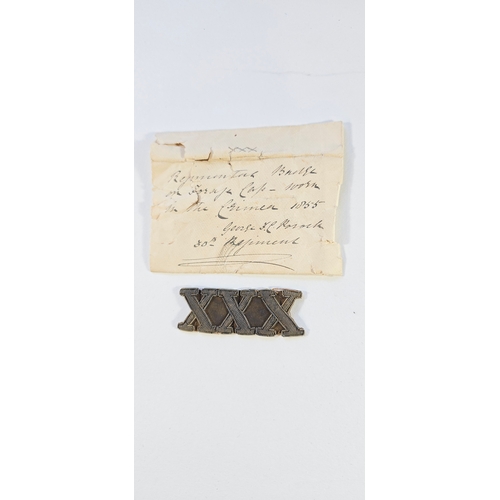 XXX
Regimental Badge
on Forage Cap – worn
in the Crimea 1855
George F. C. Pocock
30th Regiment
XXX